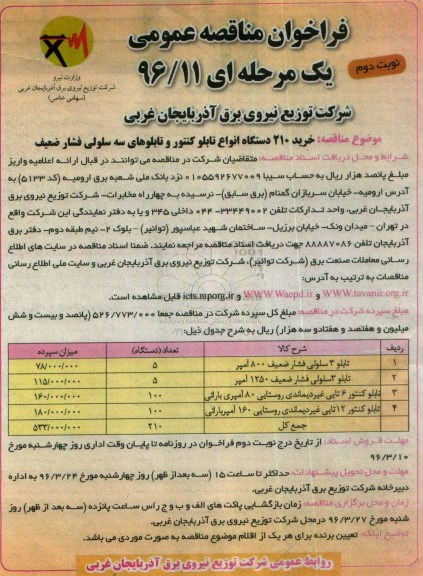 فراخوان مناقصه عمومی
یک مرحله ای ۹۶/۱۱
نوبت دوم
وزارت نیرو
شرکت توزیع نیروی برق آذربایجان غربی
(سهامی خاص)
شرکت توزیع نیروی برق آذربایجان غربی
موضوع مناقصه: خرید ۲۱۰ دستگاه انواع تابلو کنتور و تابلوهای سه سلولی فشار ضعیف
شرایط و محل دریافت اسناد مناقصه: متقاضیان شرکت در مناقصه می توانند در قبال ارائه اعلامیه واریز
مبلغ پانصد هزار ریال به حساب سیبا ۰۱۰۵۵۹۲۶۷۷۰۰۹ نزد بانک ملی شعبه برق ارومیه (کد ۵۱۳۳) به
آدرس ارومیه- خیابان سربازان گمنام (برق سابق)- نرسیده به چهارراه مخابرات- شرکت توزیع نیروی برق
آذربایجان غربی، واحد تدارکات تلفن ۳۳۴۴۹۰۰۲-۰۴۴ داخلی ۳۴۵ و یا به دفتر نمایندگی این شرکت واقع
در تهران - میدان ونک- خیابان برزیل- ساختمان شهید عباسپور (توانیر) - بلوک ۲- نیم طبقه دوم- دفتر برق
آذربایجان تلفن ۸۸۸۸۷۰۸۶ جهت دریافت اسناد مناقصه مراجعه نمایند. ضمنا اسناد مناقصه در سایت های اطلاع
رسانی معاملات صنعت برق (شرکت توانیر)، شرکت توزیع نیروی برق آذربایجان غربی و سایت ملی اطلاع رسانی
مناقصات به ترتیب به آدرس:
WWW.tavanir.org.ir و WWW.Waepd.ir و iets.mporg.ir قابل مشاهده است.
مبلغ سپرده شرکت در مناقصه: مبلغ کل سپرده شرکت در مناقصه جمعا ۵۲۶/۷۷۳/۰۰۰ (پانصد و بیست و شش
میلیون و هفتصد و هفتادو سه هزار) ریال به شرح جدول ذیل:
ردیف شرح کالا تعداد(دستگاه) میزان سپرده
۱ تابلو ۳ سلولی فشار ضعیف ۸۰۰ آمپر ۵ ۷۸/۰۰۰/۰۰۰
۲ تابلو ۳سلولی فشار ضعیف ۱۲۵۰ آمپر ۵ ۱۱۵/۰۰۰/۰۰۰
۳ تابلو کنتور ۶ تایی غیردیماندی روستایی ۸۰ آمپری بارانی ۱۰۰ ۱۶۰/۰۰۰/۰۰۰
۴ تابلو کنتور ۱۲تایی غیردیماندی روستایی ۱۶۰ آمپربارانی ۱۰۰ ۱۸۰/۰۰۰/۰۰۰
جمع کل ۲۱۰ ۵۳۳/۰۰۰/۰۰۰
مهلت فروش اسناد: از تاریخ درج نوبت دوم فراخوان در روزنامه تا پایان وقت اداری روز چهارشنبه مورخ
۹۶/۳/۱۰
مهلت و محل تحویل پیشنهادات: حداکثر تا ساعت ۱۵ (سه بعداز ظهر) روز چهارشنبه مورخ ۹۶/۳/۲۴ به اداره
دبیرخانه شرکت توزیع برق آذربایجان غربی.
زمان و محل برگزاری مناقصه: زمان بازگشایی پاکت های الف و ب و ج راس ساعت پانزده (سه بعد از ظهر) روز
شنبه مورخ ۹۶/۳/۲۷ درمحل شرکت توزیع نیروی برق آذربایجان غربی.
توضیح اینکه: تعیین برنده برای هر یک از اقلام موضوع مناقصه به صورت موردی می باشد.
روابط عمومی شرکت توزیع نیروی برق آذربایجان غربی